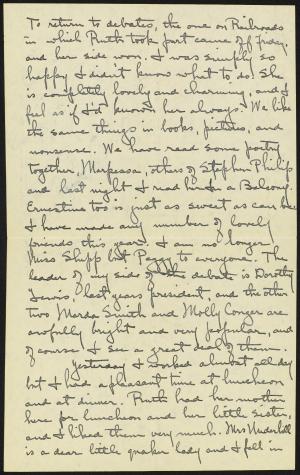 To return to debates, the one on Railroads
in which Ruth took part came off Friday,
and her side won. I was simply so
happy I didn't know what to do! She
is completely lovely and charming, and I
feel as if I'd known her always. We like
the same things in books, pictures, and
nonsense. We have read some poetry
together, Marpessa, others of Stephen Philips
and last night I read her In a Balcony.
Ernestine too is just as sweet as can be.
I have made any number of lovely
friends this year. I am no longer
Miss Shipp but Peggy to everyone. The
leader of my side of the debate is Dorothy
Lewis, last years president, and the other
two Marda Smith and Molly Conger are
awfully bright and very popular, and
of course I see a great deal of them.
Yesterday I worked almost all day
but I had a pleasant time at luncheon
and at dinner. Ruth had her mother
here for luncheon and her little sister,
and I liked them very much. Mrs Underhill
is a dear little quaker lady and I fell in